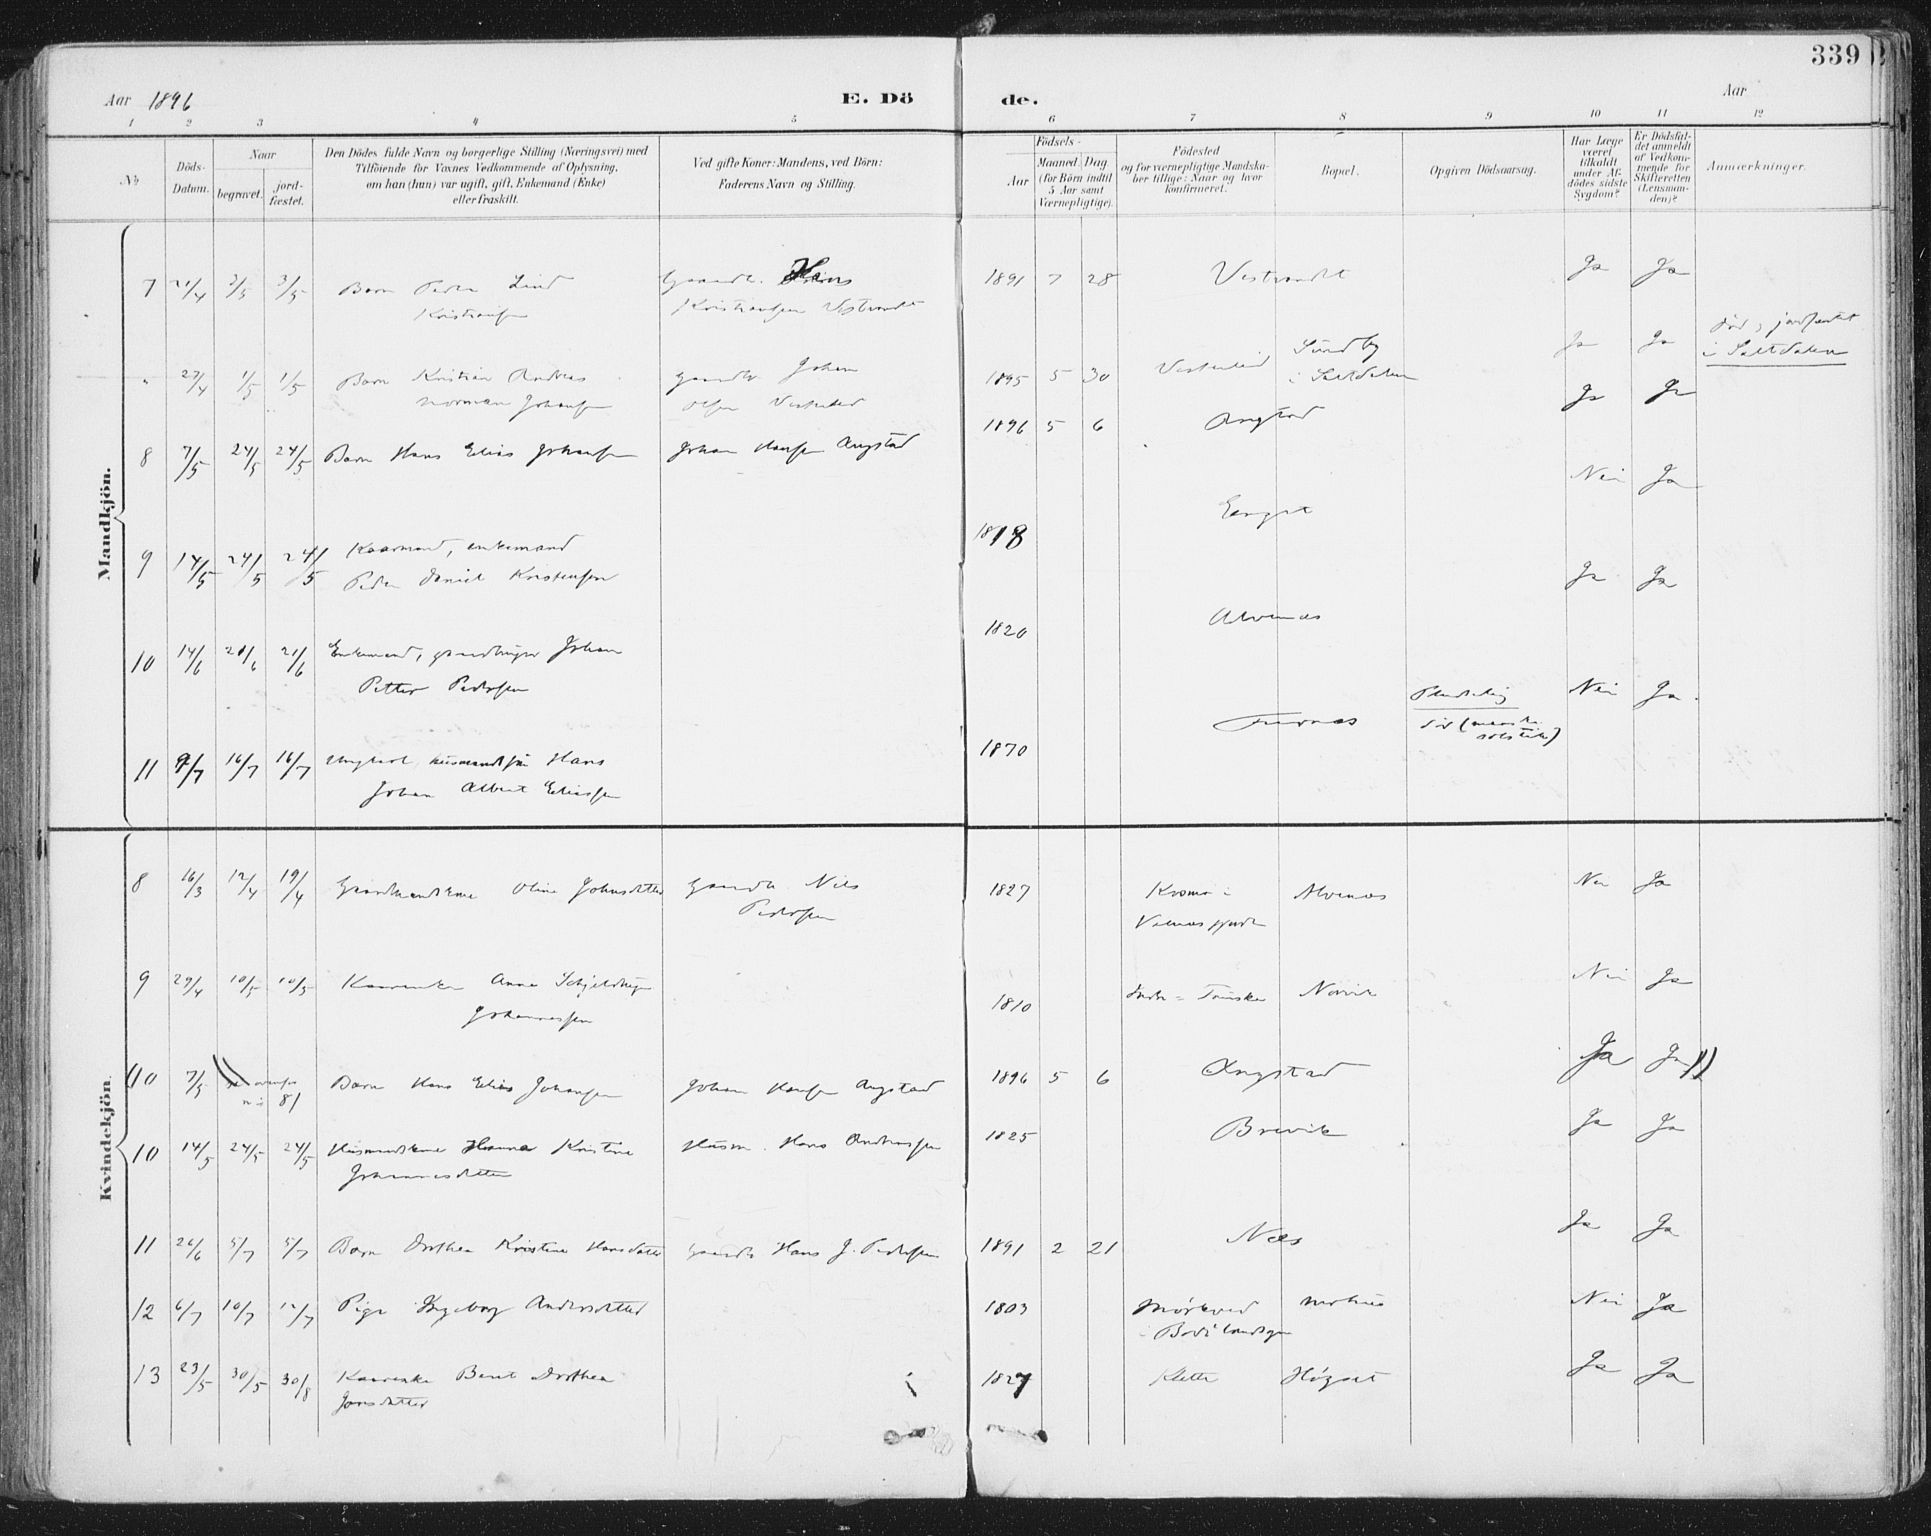 339
Aar 1896
E. Dö
de.
Aar
1 2 3 4 5 6 7 8 9 10 11 12
№
Döds-
Datum.
Naar
begravet.
jord-
fæstet.
Den Dödes fulde Navn og borgerlige Stilling (Næringsvei) med
Tilföiende for Voxnes Vedkommende af Oplysning,
om han (hun) var ugift, gift, Enkemand (Enke)
eller fraskilt.
Ved gifte Koner: Mandens, ved Börn:
Faderens Navn og Stilling.
Födsels-
Aar
Maaned. Dag
(for Börn indtil
5 Aar samt
Værnepligtige).
Födested
og for værnepligtige Mandska-
ber tillige: Naar og hvor
konfirmeret.
Bopæl.
Opgiven Dödsaarsag.
Har Læge
været
tilkaldt
under Af-
dödes sidste
Sygdom?
Er Dödsfal-
det anmeldt
af Vedkom-
mende for
Skifteretten
(Lensman-
den)?
Anmærkninger.
Mandkjön.
7 21/4 3/5 3/5 Barn Peder Lind Gaardb. Hans 1891 7 28 Vestvandt Ja Ja
Kristiansen Kristiansen Vestvandt
" 27/4 1/5 1/5 Barn Kristian Andreas Gaardb Johan 1895 5 30 Sundby Ja Ja död og jordfæstet
Norman Johansen Olsen i Saltdalen i Saltdalen
8 7/5 24/5 24/5 Barn Hans Elias Johansen Johan Hansen Angstad 1896 5 6 Angstad Ja Ja
9 14/5 24/5 24/5 Kaarmand, enkemand 1818 Nei Ja
Peder Daniel Kristensen
10 14/6 21/6 21/6 Enkemand, gaardbruger Johan 1820 Alvenæs Ja Ja
Petter Pedersen
11 9/7 16/7 16/7 Ungkarl, husmandssøn Hans 1870 Furnæs Pludselig Nei Ja
Johan Albert Eliassen död (maaske
solstik)
Kvindekjön.
8 16/3 12/4 19/4 Gaardmandskone Oline Johnsdatter Gaardb. Nils 1827 Alvenæs Nei Ja
Pedersen
9 29/4 10/5 10/5 Kaarenke Anna Schjelderup 1810 Norvik Nei Ja
Johannessen
10 7/5 8) Barn Hans Elias Johansen Johan Hansen Angstad 1896 5 6 Angstad Ja Ja
10 14/5 24/5 24/5 Husmandskone Hanna Kristine Husm. Hans Andreassen 1825 Brevik Ja Ja
Johannesdatter
11 26/6 5/7 5/7 Barn Dorthea Kristine Hansdatter Gaardb Hans J. Pedersen 1891 2 21 Næs Ja Ja
12 6/7 10/7 12/7 Pige Ingeborg Andersdatter 1803 Mørkved Nei Ja
i Bodö landsogn
13 23/5 30/5 30/8 Kaarenke Berit Dorthea 1827 Klette Høgset Ja Ja
Jonsdatter